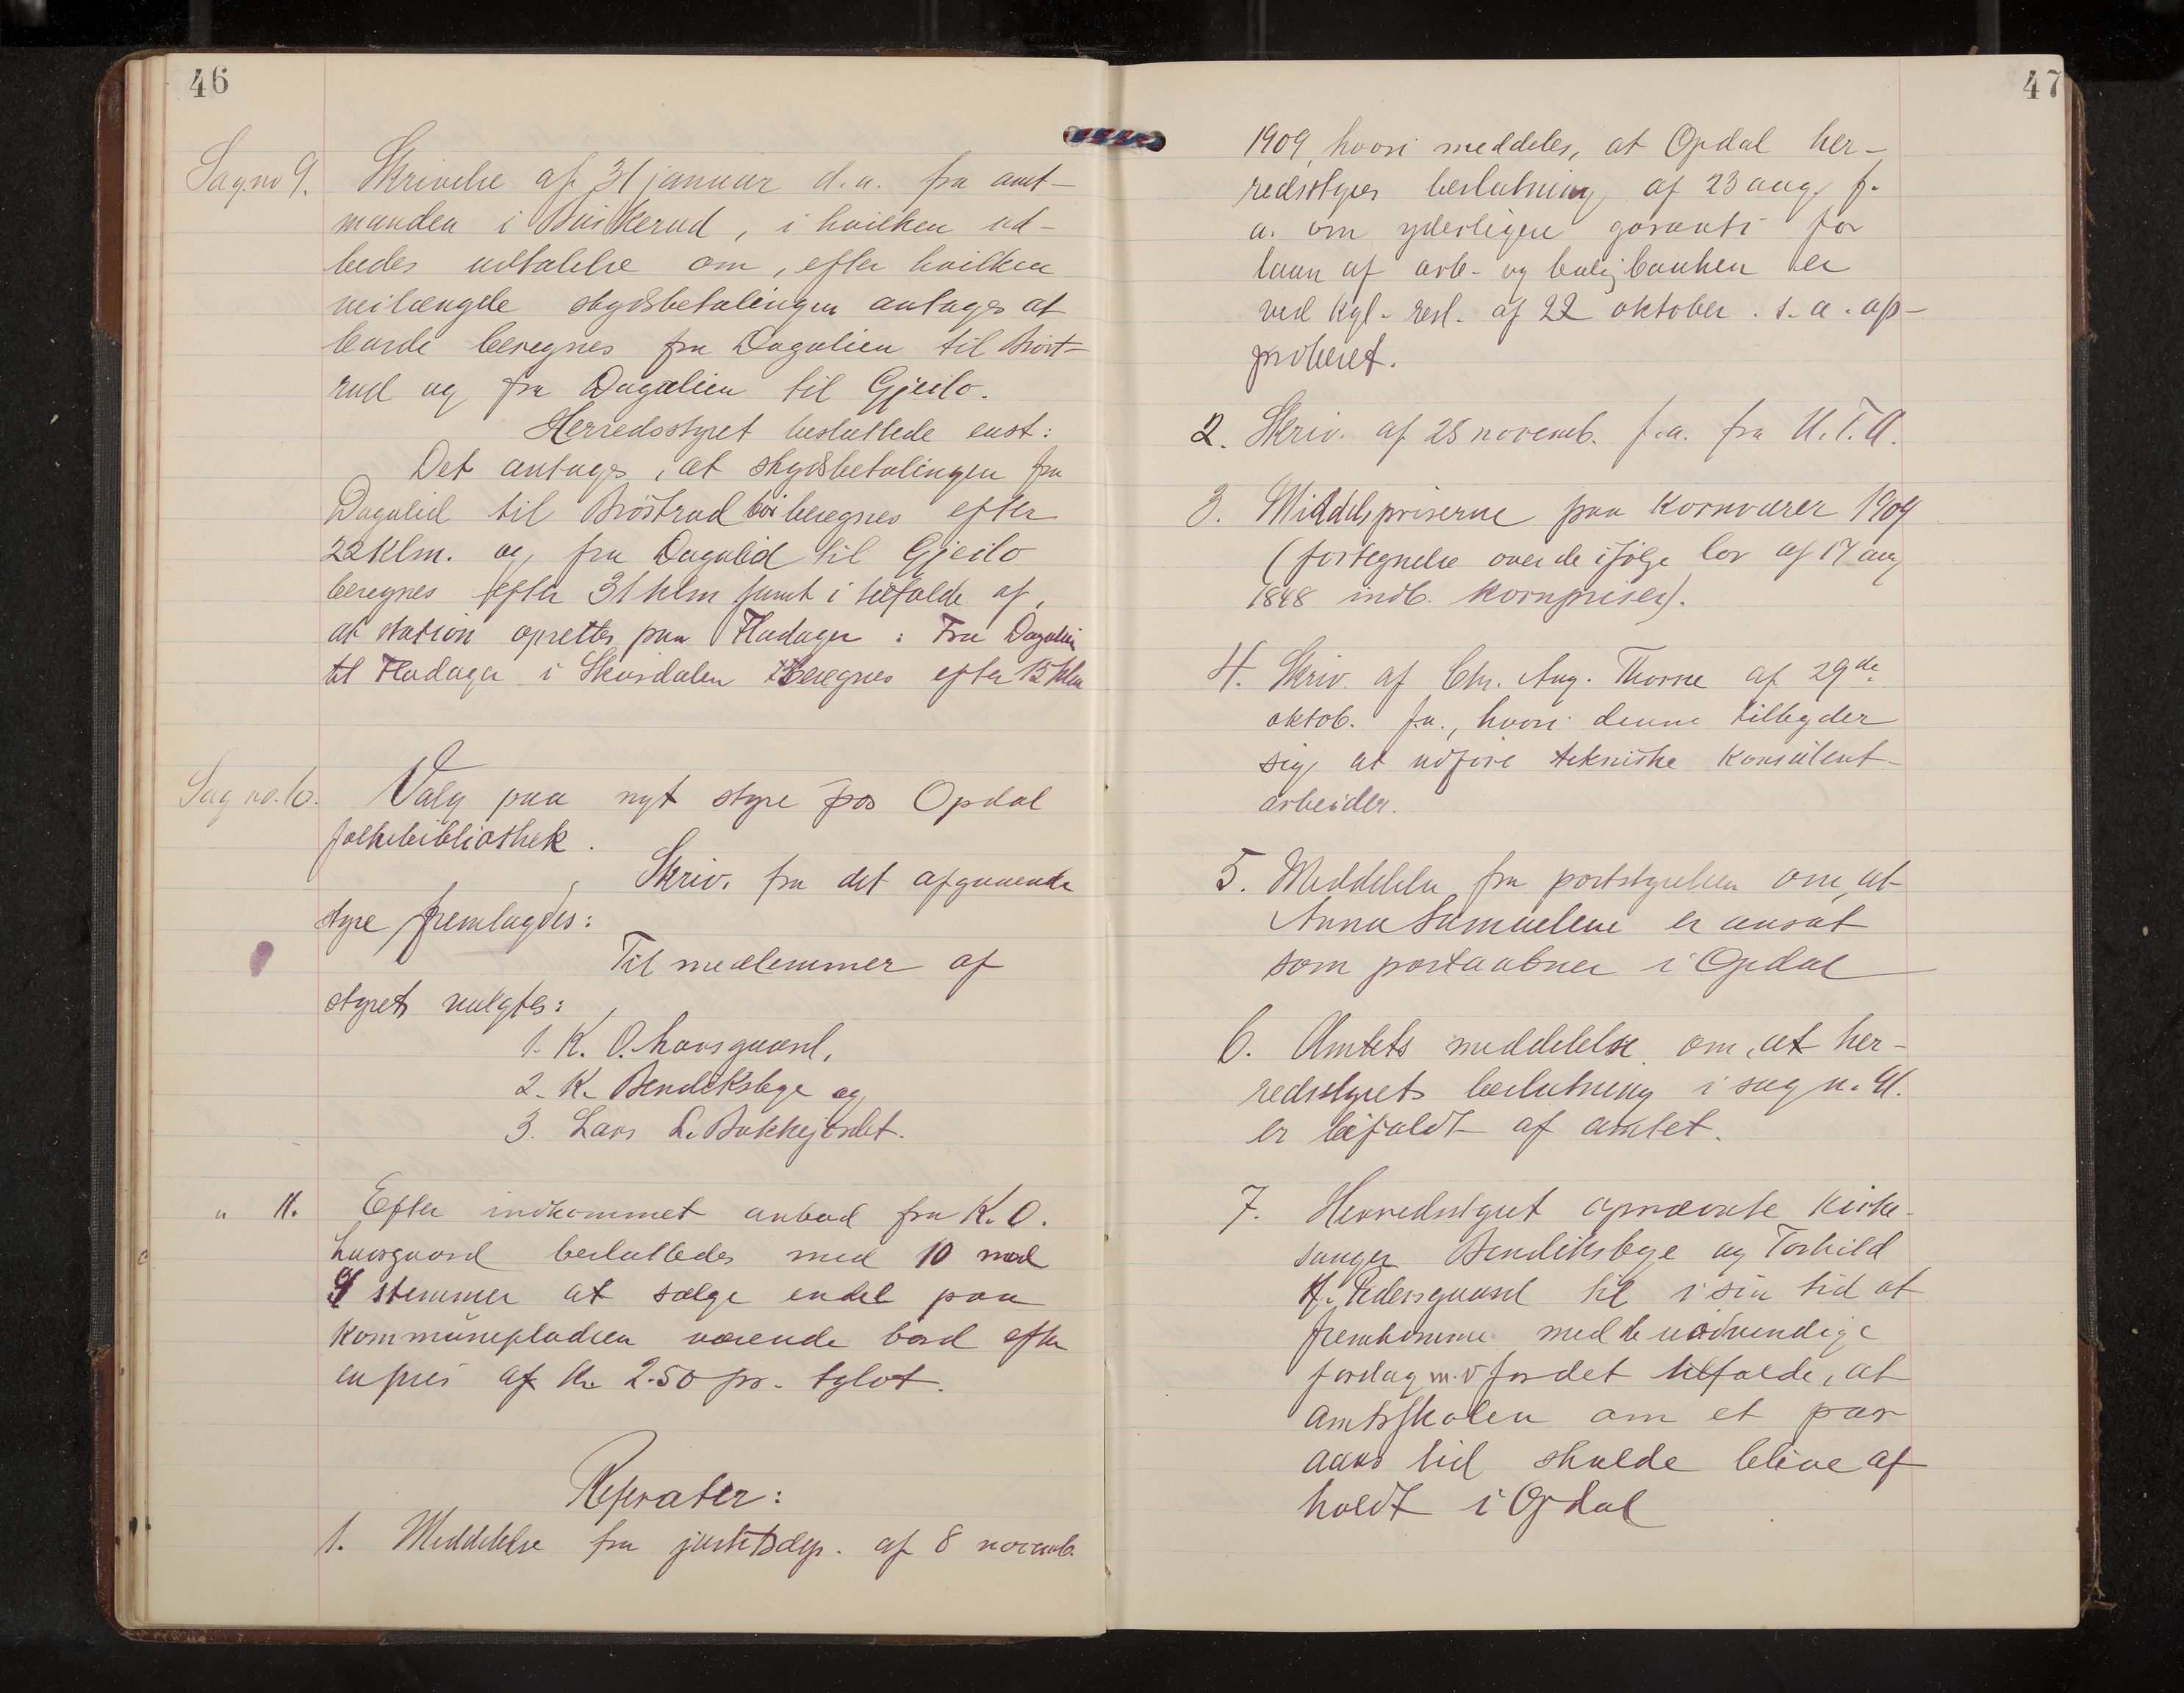 46
Sag no 9. Skrivelse af 31 januar d.a. fra amt-
manden i Buskerud, i hvilken ud-
bedes udtalelse om, efter hvilken
veilængde skydsbetalingen antages at
burde beregnes fra Dagalien til Bröst-
rud og fra Dagalien til Gjeilo.
Herredsstyret besluttede enst:
Det antages, at skydsbetalingen fra
Dagalid til Bröstrud bör beregnes efter
22 Klm. og fra Dagalid til Gjeilo
beregnes efter 31 klm samt i tilfælde af,
at station oprettes paa Fladager: Fra Dagalien
til Fladager i Skurdalen beregnes efter 15 klm
Sag no. 10. Valg paa nyt styre for Opdal
folkebibliothek.
Skriv. fra det afgaaende
styre fremlagdes:
Til medlemmer af
styret valgtes:
1. K. O. Laavsgaard,
2. K. Bendiksbye og
3. Lars L. Bakkejordet.
" 11. Efter indkommet anbud fra K. O.
Laavsgaard besluttedes med 10 mod
stemmer at sælge endel paa
kommunepladsen værende bord efter
en pris af kr. 2.50 pr. tylvt.
Referater:
1. Meddelelse fra justitsdep. af 8 novemb.
47
1909, hvori meddeles, at Opdal her-
redsstyres beslutning af 23 aug. f.
a. om yderligere garanti for
laan af arb.- og boligbanken er
ved kgl. resl. af 22 oktober s. a. ap-
proberet.
2. Skriv. af 28 novemb. f.a. fra U.T.A.
3. Middelpriserne paa Kornvarer 1909
(fortegnelse over de ifølge lov af 17 aug
1848 indb. kornpriser).
4. Skriv. af Chr. Aug. Thorne af 29de
oktob. f.a., hvori denne tilbyder
sig at udføre tekniske konsulent-
arbeider.
5. Meddelelse fra poststyrelsen om, at
Anna Samuelsen er ansat
som postaabner i Opdal
6. Amtets meddelelse om, at her-
redsstyrets beslutning i sag n.
er bifaldt af amtet.
7. Herredsstyret opnævnte kirke-
sanger Bendiksbye og Torkild
Pedersgaard til i sin tid at
fremkomme med de nødvendige
forslag m.v for det tilfælde, at
amtsskolen om et par
aars tid skulde blive af
holdt i Opdal